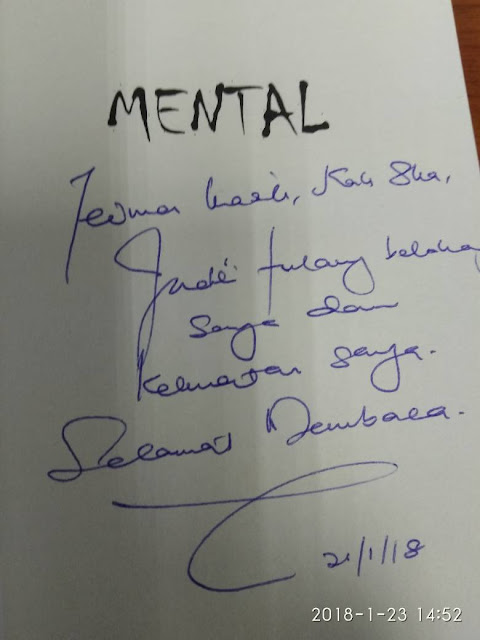 MENTAL
Terima kasih, Kak Sha,
Jadi tulang belakang
saya dan
kekuatan saya.
Selamat Membaca.
21/1/18
2018-1-23 14:52